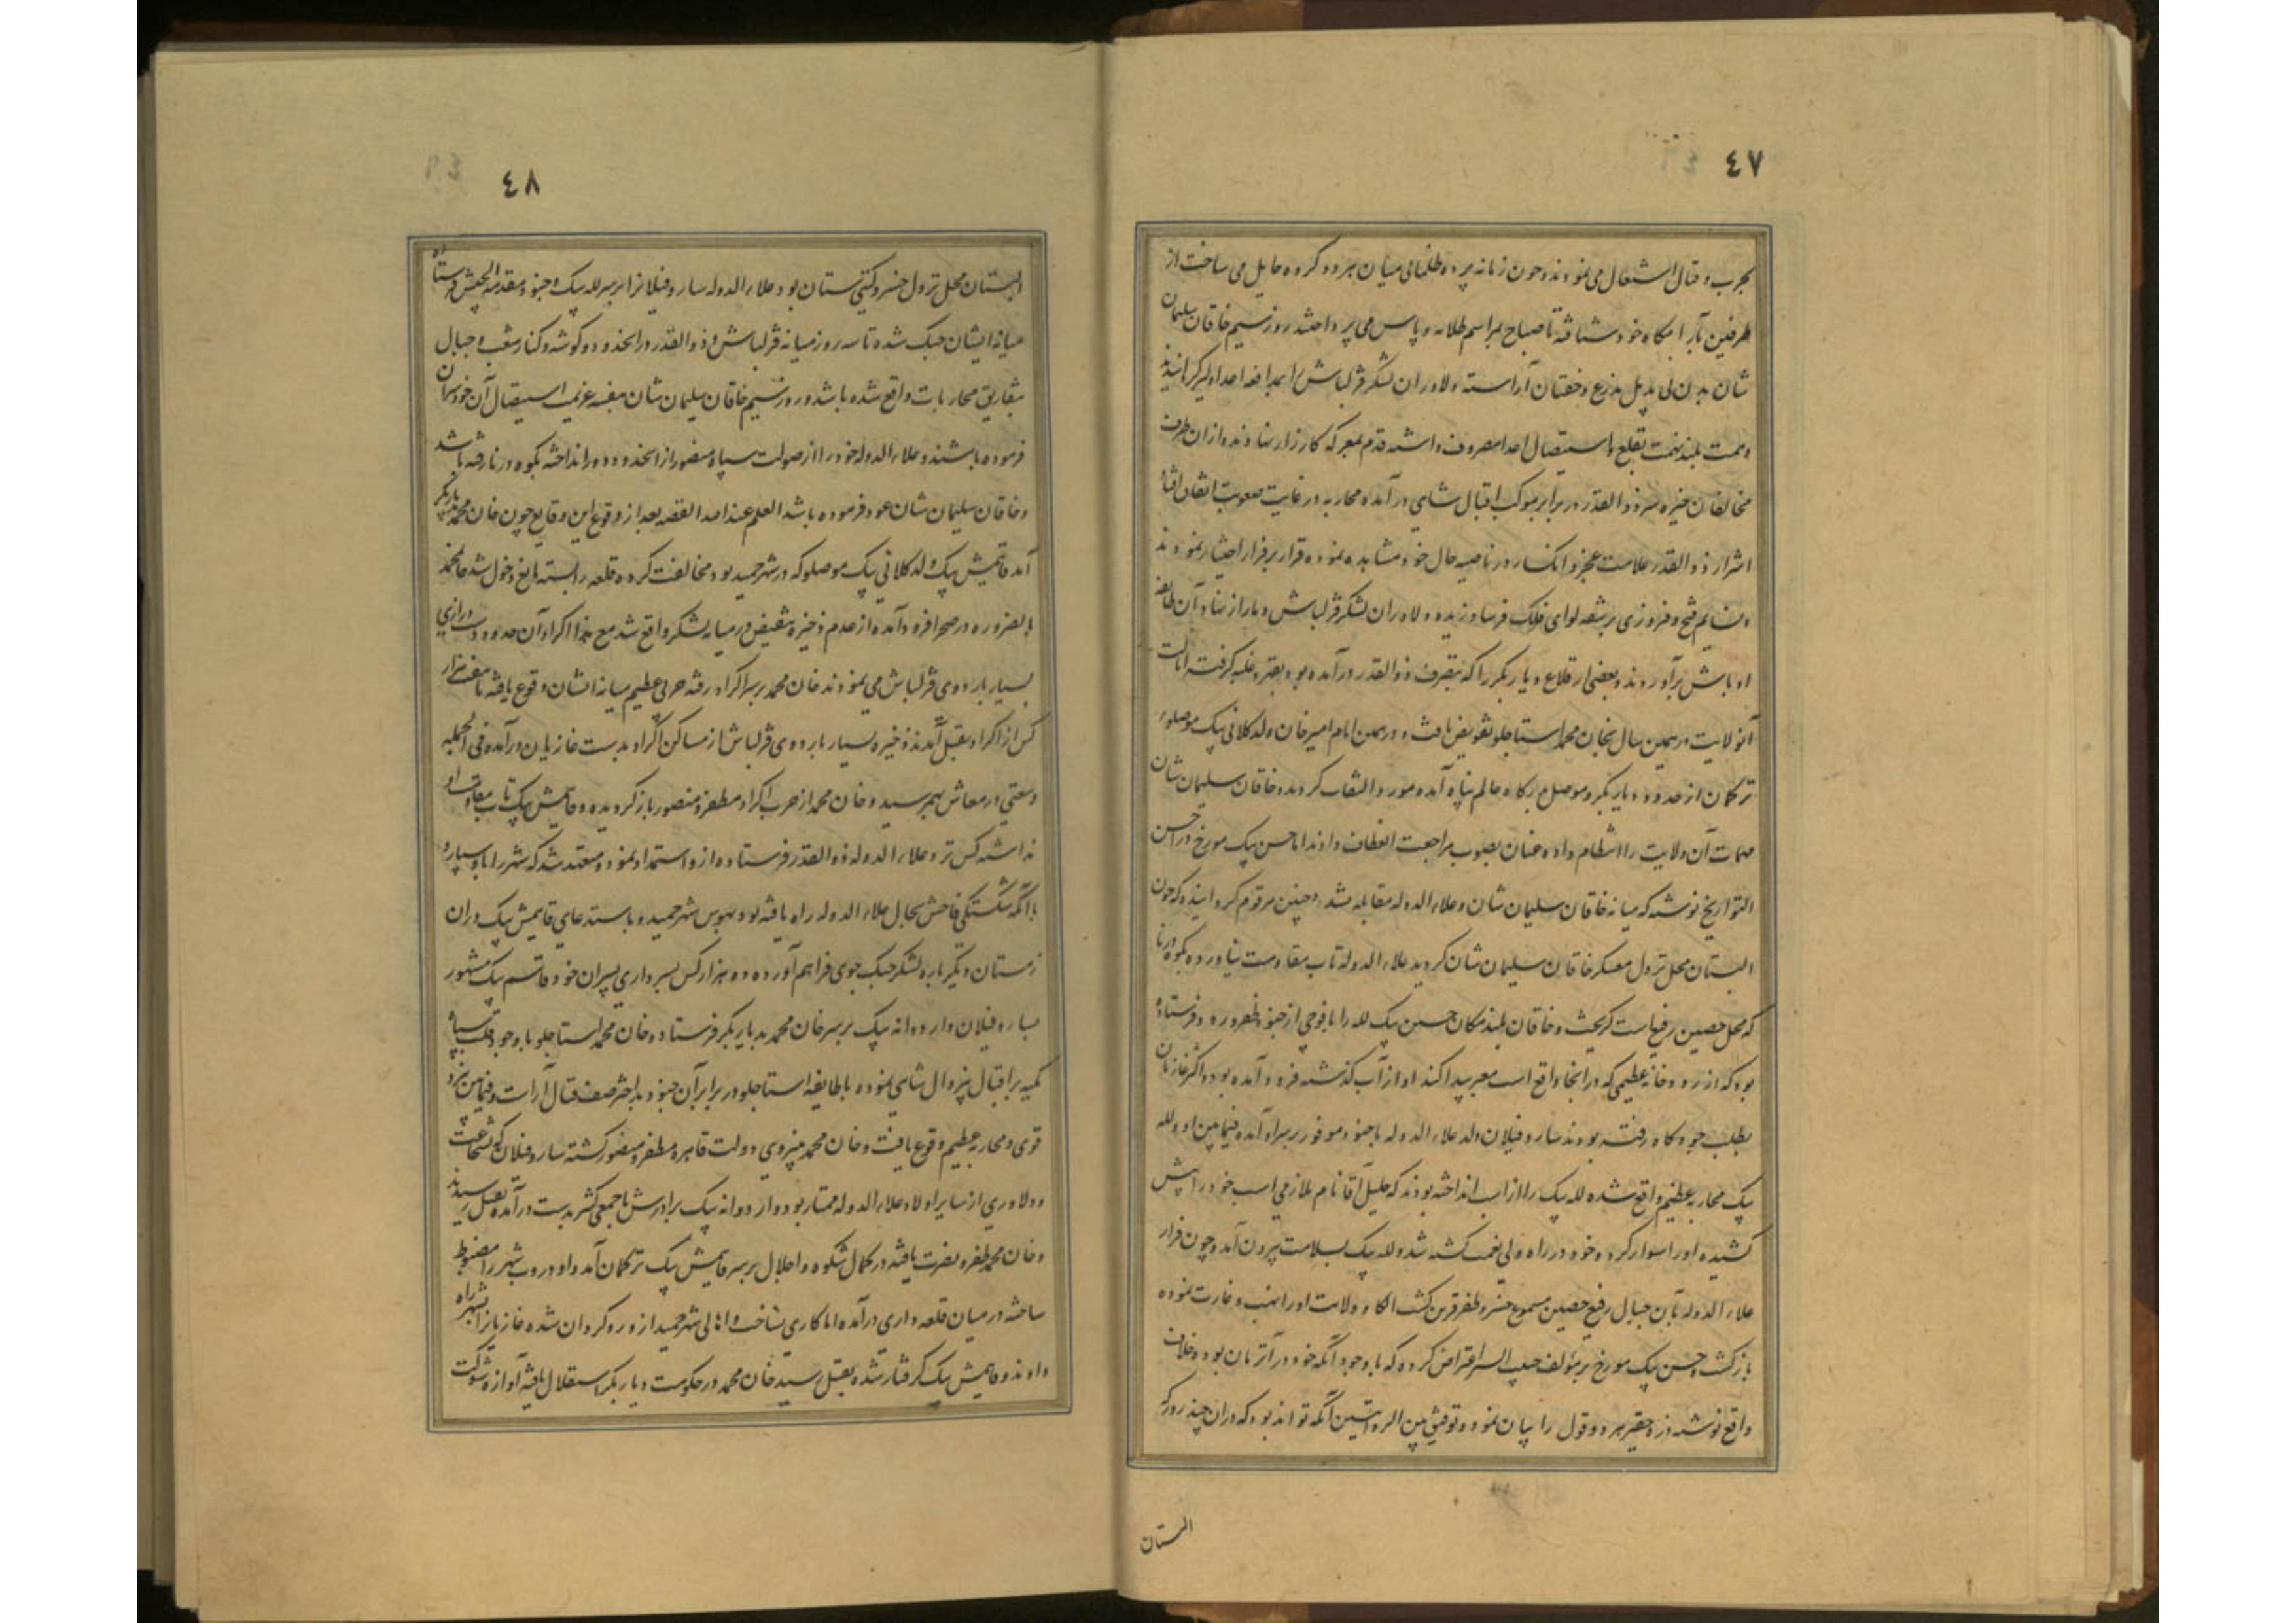 ٤٧
بحرب و قتال اشتغال می نمودند و چون زمانه پرده ظلمانی میان هر دو کروه حایل می ساخت از
طرفین بآرامکاه خود شتافته تا صباح بمراسم طلایه و پاس می پرداختند روز سیم خاقان سلیمان
شان بدن بی بدیل بدرع و خفتان آراسته دلاوران لشکر قزلباش را بمدافعه اعدا دلیر کردانیدند
و همت بلند نهمت بقلع و استیصال اعدا مصروف داشته قدم بمعرکه کارزار نهادند و از ان طرف
مخالفان خیره سر ذوالقدر در برابر موکب اقبال شاهی در آمده محاربه در غایت صعوبت اتفاق افتاد
اشرار ذوالقدر علامت عجز و انکسار در ناصیه حال خود مشاهده نموده قرار بر فرار اختیار نمودند
و نسایم فتح و فیروزی بر شقه لوای فلک فرسا وزیده دلاوران لشکر قزلباش دمار از نهاد آن طایفه
اوباش برآوردند و بعضی از قلاع دیاربکر را که بتصرف ذوالقدر درآمده بود بقهر و غلبه کرفت ایالت
آنولایت در همین سال بخان محمد استاجلو تفویض یافت و در همین ایام امیرخان ولد کلابی بیک موصلوء
ترکمان از حدود دیاربکر و موصل بدرکاه عالم پناه آمده مورد التفات کردید و خاقان سلیمان شان
مهمات آن ولایت را انتظام داده عنان بصوب مراجعت انعطاف دادند اما حسن بیک مورخ در احسن
التواریخ نوشته که میانه خاقان سلیمان شان و علاء الدوله مقابله نشد و چنین مرقوم کردانیده که چون
البستان محل نزول معسکر خاقان سلیمان شان کردید علاء الدوله تاب مقاومت نیاورده بکوه درنا
که محل حصین رفیع است کریخت و خاقان بلند مکان حسین بیک لله را با فوجی از جنود ظفر ورود فرستاده
بود که از رودخانه عظیمی که در انجا واقع است معبر پیدا کند او از آب کذشته فرود آمده بود و اکثر غازیان
بطلب جو و کاه رفته بودند ساروقپلان ولد علاء الدوله با جنود موفور بر سر او آمده فیمابین او و لله
بیک محاربه عظیم واقع شده لله بیک را از اسب انداخته بودند که جلیل آقا نام ملازمی اسب خود را پیش
کشیده او را سوار کرد و خود در راه ولی نعمت کشته شد و لله بیک بسلامت بیرون آمد و چون فرار
علاء الدوله بآن جبال رفیع حصین مسموع خسرو ظفر قرین کشت الکا و ولایت او را نهب و غارت نموده
بازکشت و حسن بیک مورخ بر مؤلف حبیب السیر اعتراض کرده که با وجود آنکه خود در آنزمان بوده خلاف
واقع نوشته ذره حقیر هر دو قول را بیان نمود و توفیق بین الروایتین آنکه تواند بود که دران چند روز که
البستان
٤٨
البستان محل نزول خسرو کیتی ستان بود علاء الدوله ساروقپلانرا بر سر لله بیک و جنود مقدمة الجیش فرستاده
میانه ایشان جنک شده تا سه روز میانه قزلباش و ذوالقدر در انحدود و کوشه و کنار شعب و جبال
بتفاریق محاربات واقع شده باشد و روز سیم خاقان سلیمان شان بنفسه عزیمت استیصال آن خودسران
فرموده باشند و علاء الدوله خود را از صولت سپاه منصور از انحدود دور انداخته بکوه درنا رفته باشد
و خاقان سلیمان شان عود فرموده باشد العلم عند الله القصه بعد از وقوع این وقایع چون خان محمد بدیاربکر
آمد قایتمش بیک ولد کلابی بیک موصلو که در شهر حمید بود مخالفت کرده قلعه را بسته مانع دخول شد خان محمد
بالضروره در صحرا فرود آمده از عدم ذخیره تنقیض در میانه لشکر واقع شد مع هذا اکراد آن حدود دست درازی
بسیار باردوی قزلباش می نمودند خان محمد بر سر اکراد رفته حربی عظیم میانه ایشان وقوع یافته تا هفت هزار
کس از اکراد بقتل آمدند ذخیره بسیار باردوی قزلباش از مساکن اکراد بدست غازیان درآمده فی الجمله
وسعتی در معاش بهم رسید و خان محمد از حرب اکراد مظفر و منصور باز کردیده و قایتمش بیک تاب مقاومت او
نداشته کس نزد علاء الدوله ذوالقدر فرستاده از و استمداد نمود و متعهد شد که شهر را باو سپارد
با آنکه شکستکی فاحش بحال علاء الدوله راه یافته بود بهوس شهر حمید و باستدعای قایتمش بیک دران
زمستان دیکر باره لشکر جنک جوی فراهم آورده ده هزار کس بسرداری پسران خود قاسم بیک مشهور
بساروقپلان و اردوانه بیک بر سر خان محمد بدیاربکر فرستاد و خان محمد استاجلو با وجود قلت سپاه
تکیه بر اقبال بیزوال شاهی نموده با طایفه استاجلو در برابر آن جنود بداختر صف قتال آراست و فیمابین نبرد
قوی و محاربه عظیم وقوع یافت و خان محمد بنیروی دولت قاهره مظفر و منصور کشته ساروقپلان که بشجاعت
و دلاوری از سایر اولاد علاء الدوله ممتاز بود و اردوانه بیک برادرش با جمعی کثیر بدست درآمده بقتل رسیدند
و خان محمد ظفر و نصرت یافته در کمال شکوه و اجلال بر سر قایتمش بیک ترکمان آمد و او دروب شهر را مضبوط
ساخته در میان قلعه داری درآمده اما کاری نساخت و اهالی شهر حمید از و روکردان شده غازیانرا بشهر راه
دادند و قایتمش بیک کرفتار شده بقتل رسید خان محمد در حکومت دیاربکر استقلال یافته آوازه شوکت